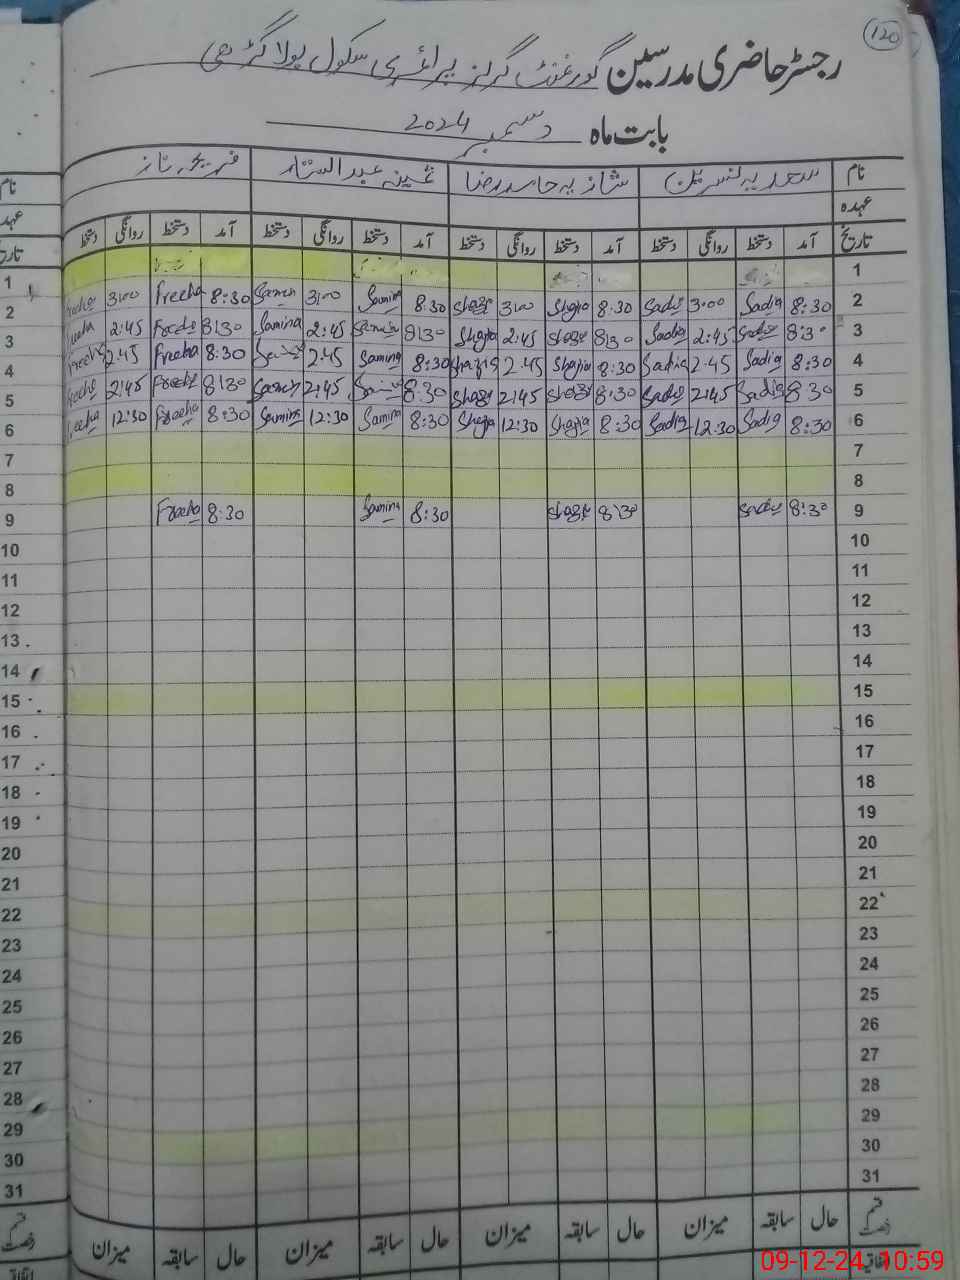 120
رجسٹر حاضری مدرسین گورنمنٹ گرلز پرائمری سکول پولا گڑھی
بابت ماہ دسمبر 2024
نام سعدیہ نسرین شازیہ حامد رضا ثمینہ عبدالستار فریحہ ناز نام
عہدہ عہدہ
تاریخ آمد دستخط روانگی دستخط آمد دستخط روانگی دستخط آمد دستخط روانگی دستخط آمد دستخط روانگی دستخط تاریخ
1 1
2 8:30 Sadia 3:00 Sadia 8:30 Shazia 3:00 Shazia 8:30 Samina 3:00 Samina 8:30 Freeha 3:00 Freeha 2
3 8:30 Sadia 2:45 Sadia 8:30 Shazia 2:45 Shazia 8:30 Samina 2:45 Samina 8:30 Freeha 2:45 Freeha 3
4 8:30 Sadia 2:45 Sadia 8:30 Shazia 2:45 Shazia 8:30 Samina 2:45 Samina 8:30 Freeha 2:45 Freeha 4
5 8:30 Sadia 2:45 Sadia 8:30 Shazia 2:45 Shazia 8:30 Samina 2:45 Samina 8:30 Freeha 2:45 Freeha 5
6 8:30 Sadia 12:30 Sadia 8:30 Shazia 12:30 Shazia 8:30 Samina 12:30 Samina 8:30 Freeha 12:30 Freeha 6
7 7
8 8
9 8:30 Sadia 8:30 Shazia 8:30 Samina 8:30 Freeha 9
10 10
11 11
12 12
13 13
14 14
15 15
16 16
17 17
18 18
19 19
20 20
21 21
22 22
23 23
24 24
25 25
26 26
27 27
28 28
29 29
30 30
31 31
قسم رخصت حال سابقہ میزان حال سابقہ میزان حال سابقہ میزان حال سابقہ میزان قسم رخصت
اتفاقیہ
09-12-24 10:59